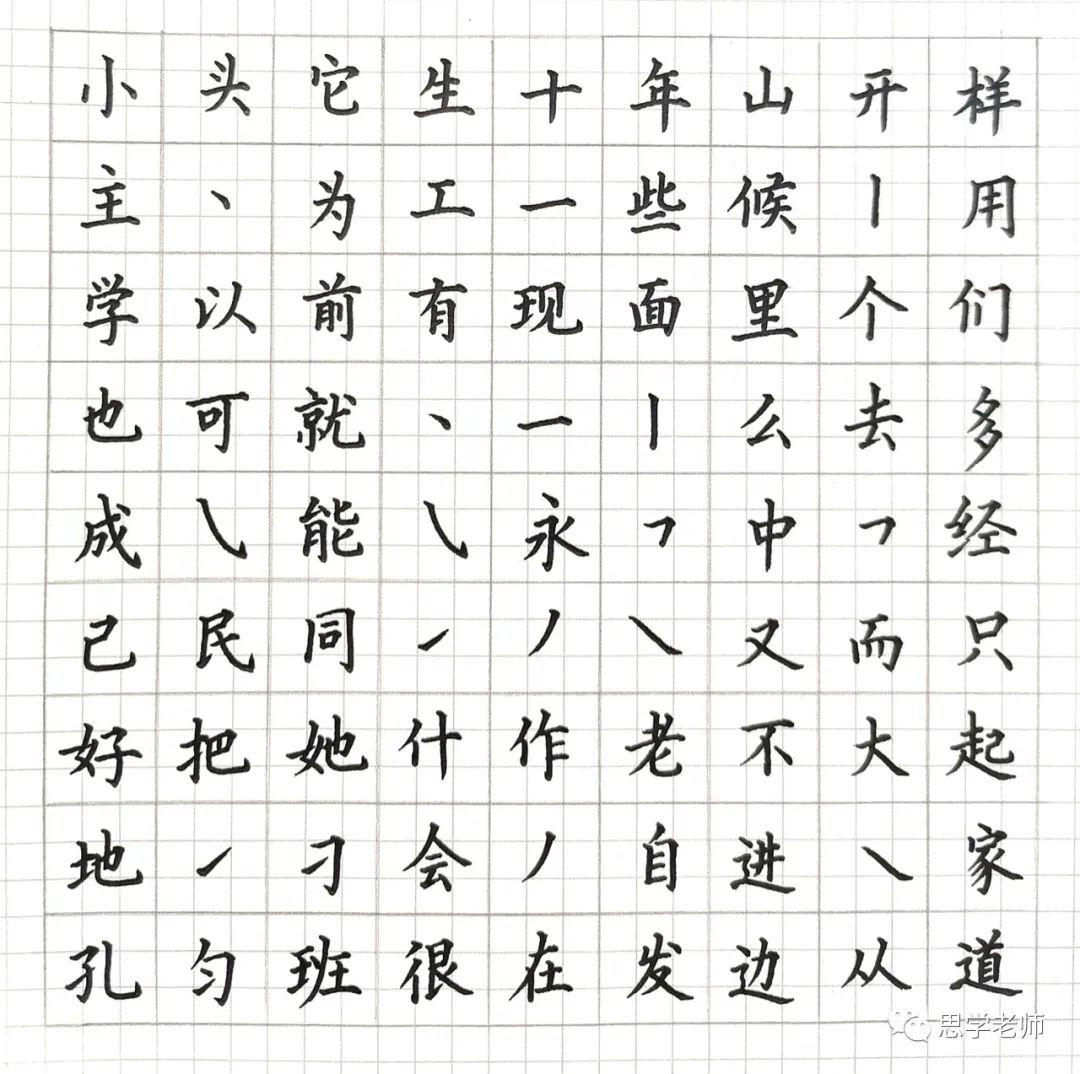 小 头 它 生 十 年 山 开 样
主 丶 为 工 一 些 候 丨 用
学 以 前 有 现 面 里 个 们
也 可 就 丶 一 丨 么 去 多
成 ㇂ 能 ㇂ 永 ㇇ 中 ㇇ 经
己 民 同 ㇀ 丿 ㇏ 又 而 只
好 把 她 什 作 老 不 大 起
地 ㇀ 刁 会 丿 自 进 ㇏ 家
孔 匀 班 很 在 发 边 从 道
思学老师